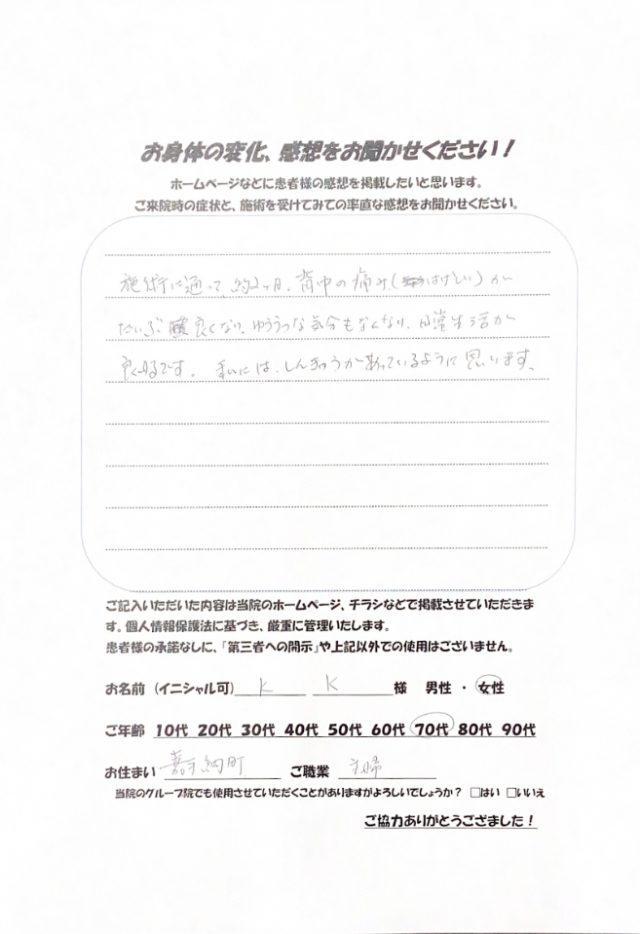 お身体の変化、感想をお聞かせください！
ホームページなどに患者様の感想を掲載したいと思います。
ご来院時の症状と、施術を受けてみての率直な感想をお聞かせください。
施術に通って、約2ヶ月、背中の痛み(はげしい)が
だいぶ良くなり、ゆううつな気分もなくなり、日常生活が
です。 私には、しんきゅうが
ように思います。
ご記入いただいた内容は当院のホームページ、チラシなどで掲載させていただきま
す。個人情報保護法に基づき、厳重に管理いたします。
患者様の承諾なしに、「第三者への開示」や上記以外での使用はございません。
お名前 (イニシャル可) K K 様 男性 ・ 女性
ご年齢 10代 20代 30代 40代 50代 60代 70代 80代 90代
お住まい 嘉納町 ご職業 主婦
当院のグループ院でも使用させていただくことがありますがよろしいでしょうか？ □はい □いいえ
ご協力ありがとうござました！